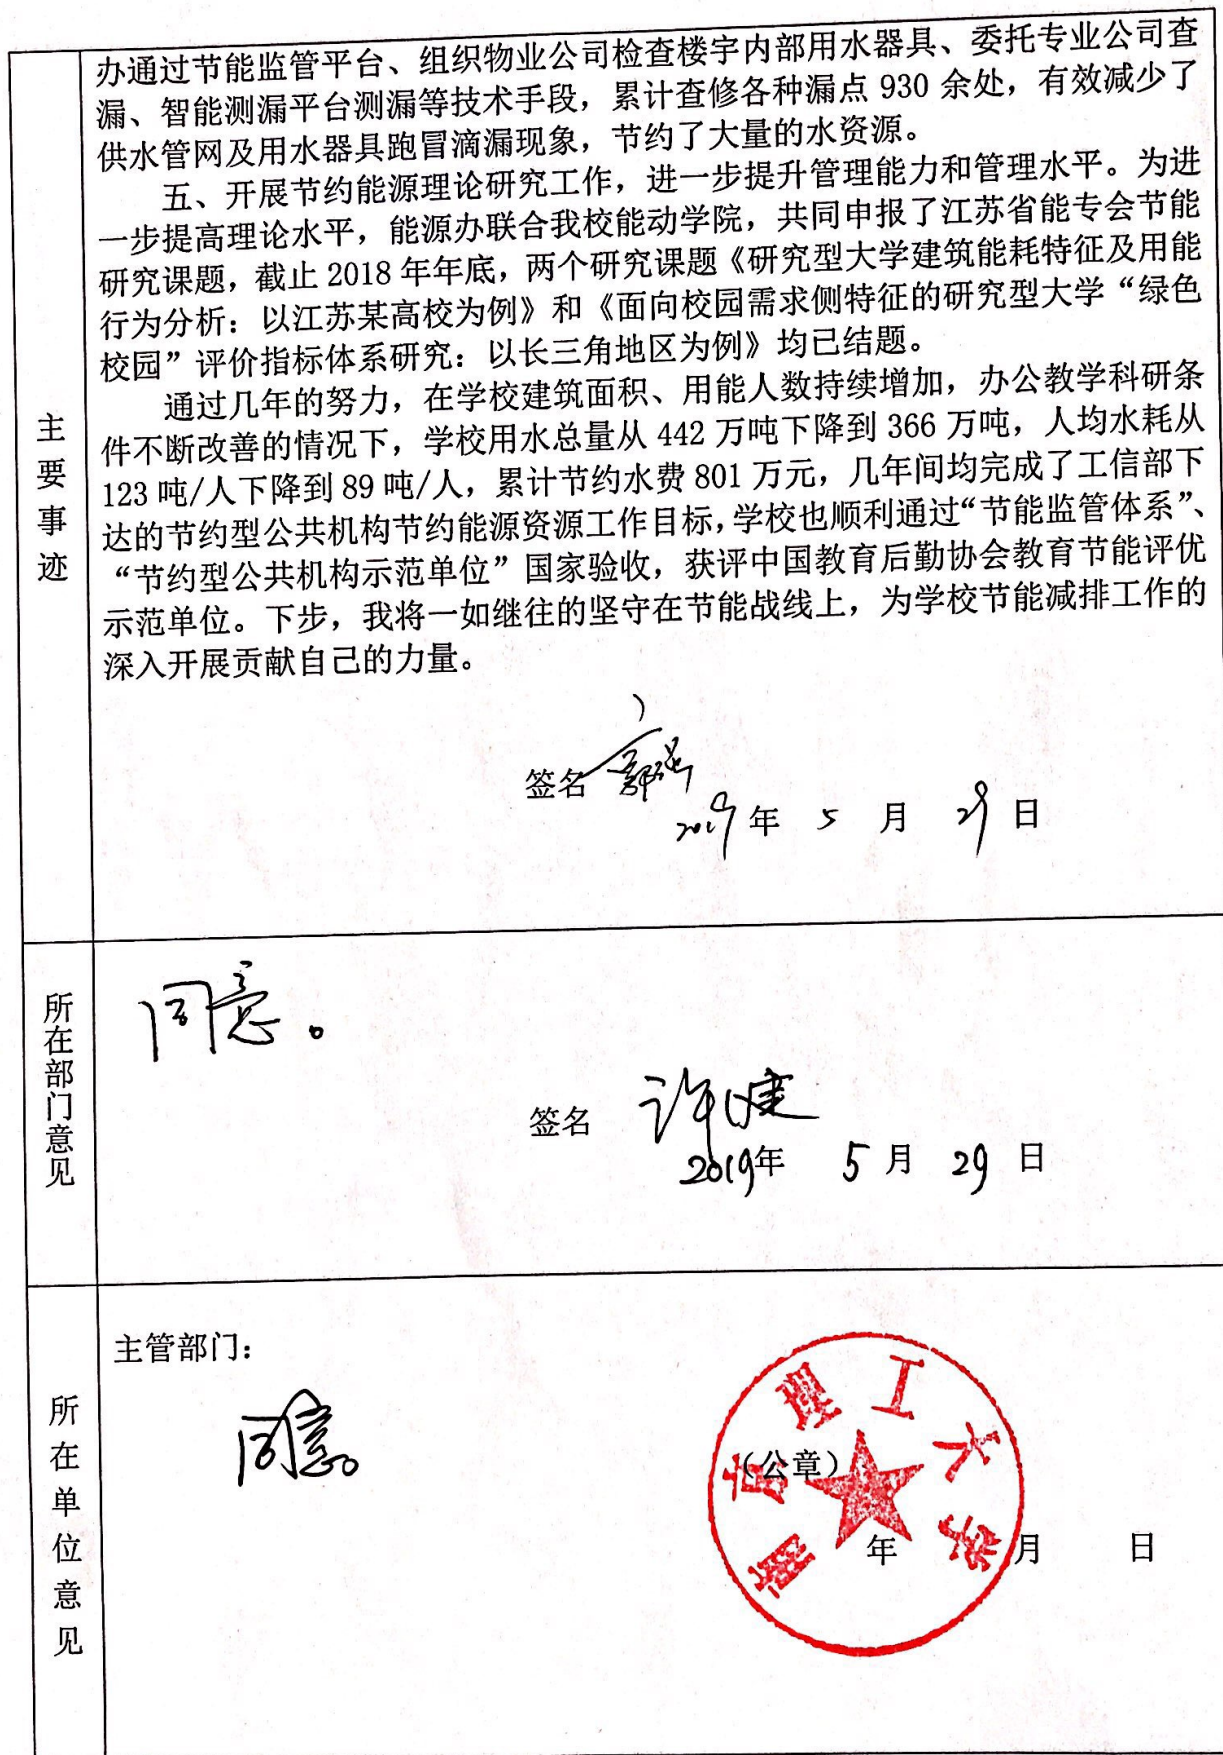 办通过节能监管平台、组织物业公司检查楼宇内部用水器具、委托专业公司查
漏、智能测漏平台测漏等技术手段，累计查修各种漏点 930 余处，有效减少了
供水管网及用水器具跑冒滴漏现象，节约了大量的水资源。
五、开展节约能源理论研究工作，进一步提升管理能力和管理水平。为进
一步提高理论水平，能源办联合我校能动学院，共同申报了江苏省能专会节能
研究课题，截止 2018 年年底，两个研究课题《研究型大学建筑能耗特征及用能
行为分析：以江苏某高校为例》和《面向校园需求侧特征的研究型大学“绿色
校园”评价指标体系研究：以长三角地区为例》均已结题。
通过几年的努力，在学校建筑面积、用能人数持续增加，办公教学科研条
件不断改善的情况下，学校用水总量从 442 万吨下降到 366 万吨，人均水耗从
123 吨/人下降到 89 吨/人，累计节约水费 801 万元，几年间均完成了工信部下
达的节约型公共机构节约能源资源工作目标，学校也顺利通过“节能监管体系”、
“节约型公共机构示范单位”国家验收，获评中国教育后勤协会教育节能评优
示范单位。下步，我将一如继往的坚守在节能战线上，为学校节能减排工作的
深入开展贡献自己的力量。
主要事迹
签名
2019 年 5 月 29 日
所在部门意见
同意。
签名 许健
2019年 5 月 29 日
所在单位意见
主管部门：
同意。
南京理工大学
（公章）
年 月 日